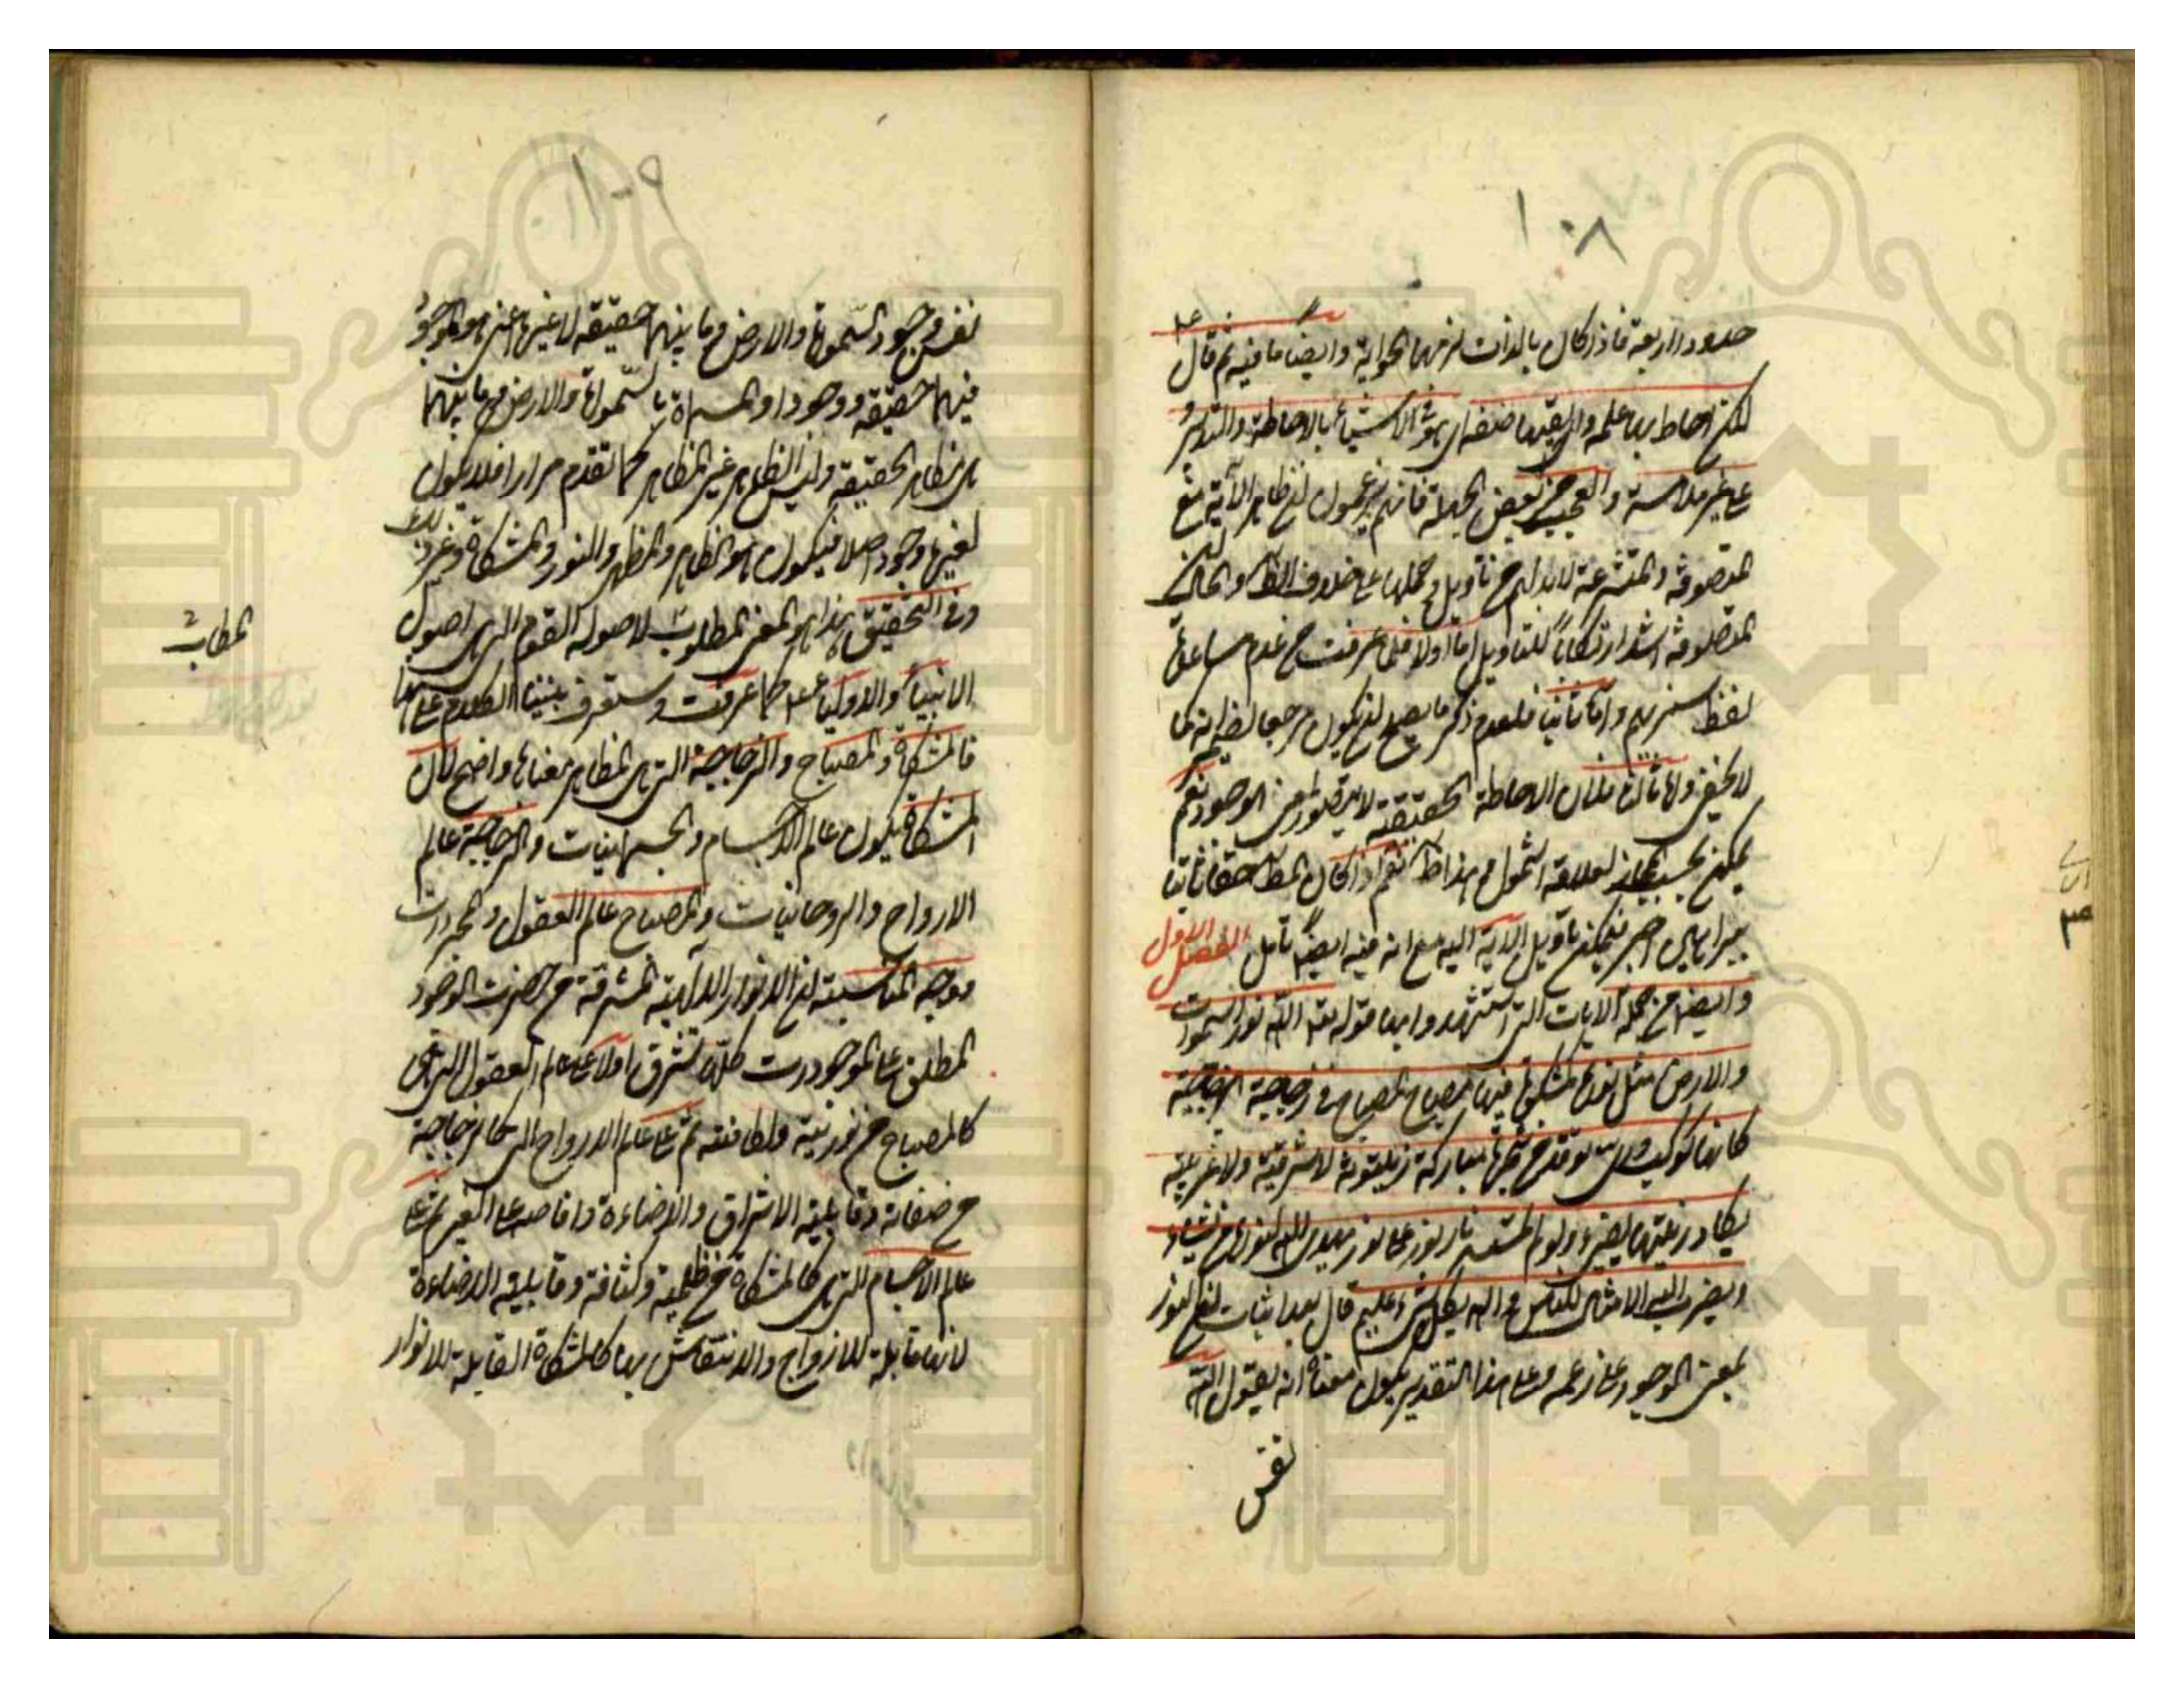 ١٠٨
حدودا اربعة فاذا كان بالذات لزمها الحواية وايضا ما فيه ثم قال
لكنه احاط بها علمه واتقنها صنعه اى هو فى الاشياء بالاحاطة والتدبير
على غير ملامسة والعجب من بعض الجهلة فانهم يزعمون ان ظاهر الآية مع
المتصوفة والمتشرعة لابد لهم من تأويل وحملها على خلاف الظاهر والحال ان
المتصوفة اشد ارتكابا للتأويل اما اولا فلما عرفت من عدم مساعدة
لفظ سنريهم واما ثانيا فلعدم ذكر ما يصلح ان يكون مرجعا لضمير انه كما
لا يخفى واما ثالثا فلان الاحاطة الحقيقية لا يتصور لمعنى الوجود نعم
يمكن بحسب المجاز لعلاقة الشمول وهذا ظاهر نعم اذا كان المطلب حقا ثابتا
ببراهين اخر فيمكن تأويل الآية اليه مع انه فيه ايضا تأمل الفصل الاول
وايضا من جملة الآيات التى استشهدوا بها قوله تعالى الله نور السموات
والارض مثل نوره كمشكوة فيها مصباح المصباح فى زجاجة الزجاجة
كانها كوكب درى توقد من شجرة مباركة زيتونة لا شرقية ولا غربية
يكاد زيتها يضىء ولو لم تمسسه نار نور على نور يهدى الله لنوره من يشاء
ويضرب الله الامثال للناس والله بكل شىء عليم قال بعد اثبات ان النور
بمعنى الوجود على زعمه وعلى هذا التقدير يكون معناه انه يقول الله
نفس
١٠٩
نفس وجود السموات والارض وما بينهما حقيقة لا غيرها اعنى هو الموجود
فيهما حقيقة ووجودا والمسماة بالسموات والارض وما بينهما
هى مظاهر الحقيقة وليس الظاهر غير المظاهر كما تقدم مرارا فلا يكون
لغيره وجود اصلا فيكون هو الظاهر والمظهر والنور والمشكاة وغير ذلك
وفى التحقيق هذا هو المعنى المطلوب لاصول القوم التى هى اصول
الانبياء والاولياء ع كما عرفت وستعرف بيننا الكلام على هذا
فالمشكاة والمصباح والزجاجة التى هى المظاهر معناها واضح لان
المشكاة يكون عالم الاجسام والجسمانيات والزجاجة عالم
الارواح والروحانيات والمصباح عالم العقول والمجردات
ووجه المناسبة ان الانوار الالهية المشرقة من حضرت الوجود
المطلق على الموجودات كلها تشرق اولا على عالم العقول التى هى
كالمصباح من نورية ولطافته ثم على عالم الارواح التى كالزجاجة
من صفائه وقابلية الاشراق والاضاءة وافاضه على الغير ثم على
عالم الاجسام التى هى كالمشكاة من ظلمية وكثافة وقابلية الاضاءة
لانها قابلة للازواج والانتقاش بها كالمشكاة القابلة للانوار
المطابق